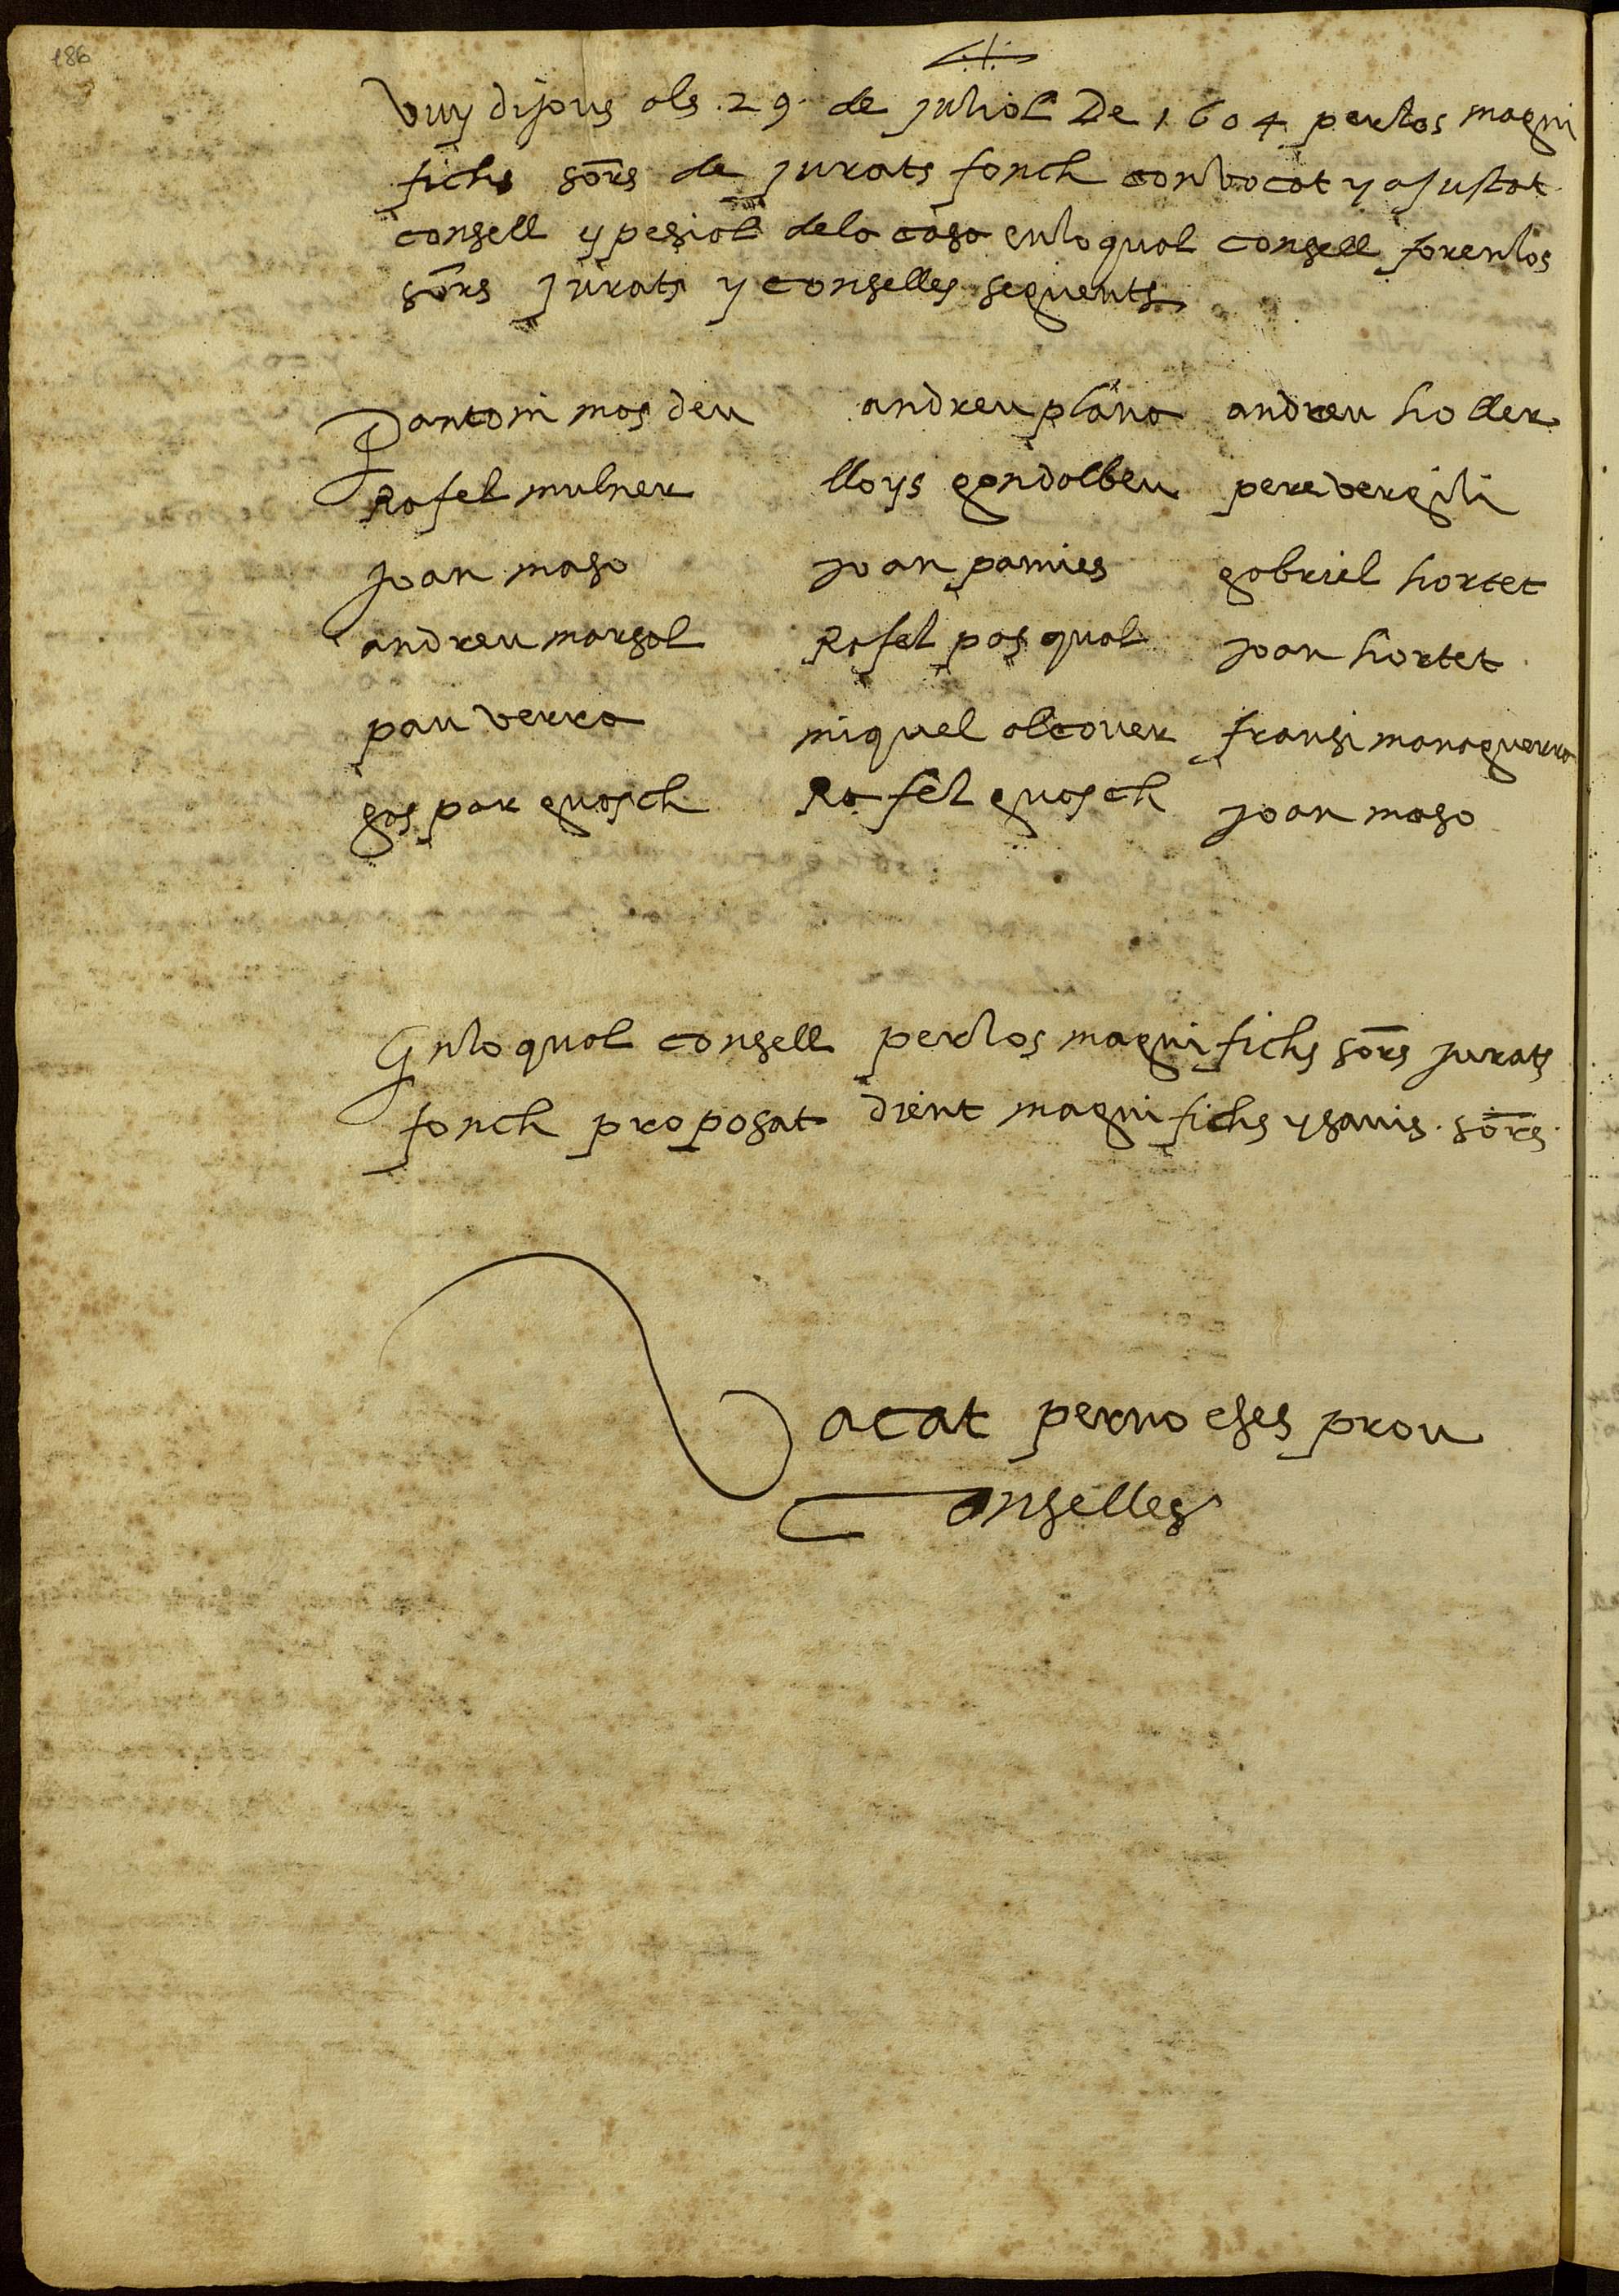 186
vuy dijous als .29. de juliol De 1604 perlos magni
fichs sors de jurats fonch convocat y ajustat
consell ypesial dela casa enlo qual consell forenlos
sors jurats y conselles seguents
antoni mas deu andreu plana andreu holler
Rafel mulner lloys gondolbeu pere vergili
joan maso joan pamies gabriel hortet
andreu marsal Rafel pasqual joan hortet
pau verra miquel alcover fransi managuerra
gaspar guasch Rafel guasch joan maso
Enlo qual consell perlos magnifichs sors jurats
fonch proposat dient magnifichs y savis . sors.
Vacat perno eses prou
Conselles